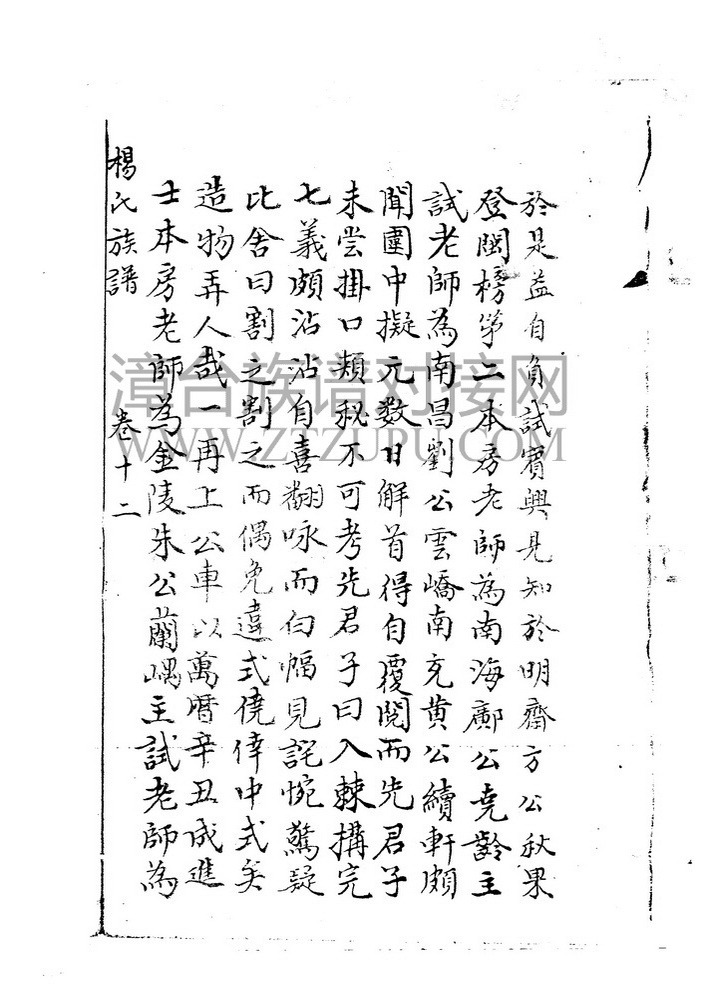 於是益自負試賓興見知於明齋方公秋果
登閩榜第二本房老師為南海鄺公堯齡主
試老師為南昌劉公雲嶠南充黃公續軒頗
聞闈中擬元數日解首得自覆閱而先君子
未嘗掛口類秘不可考先君子曰入棘搆完
七義頗沾沾自喜翻咏而白幅見詫惋驚疑
比舍曰割之割之而偶免違式僥倖中式矣
造物弄人哉一再上公車以萬曆辛丑成進
士本房老師為金陵朱公蘭嵎主試老師為
楊氏族譜 卷十二
漳台族谱对接网
WWW.ZTZUPU.COM